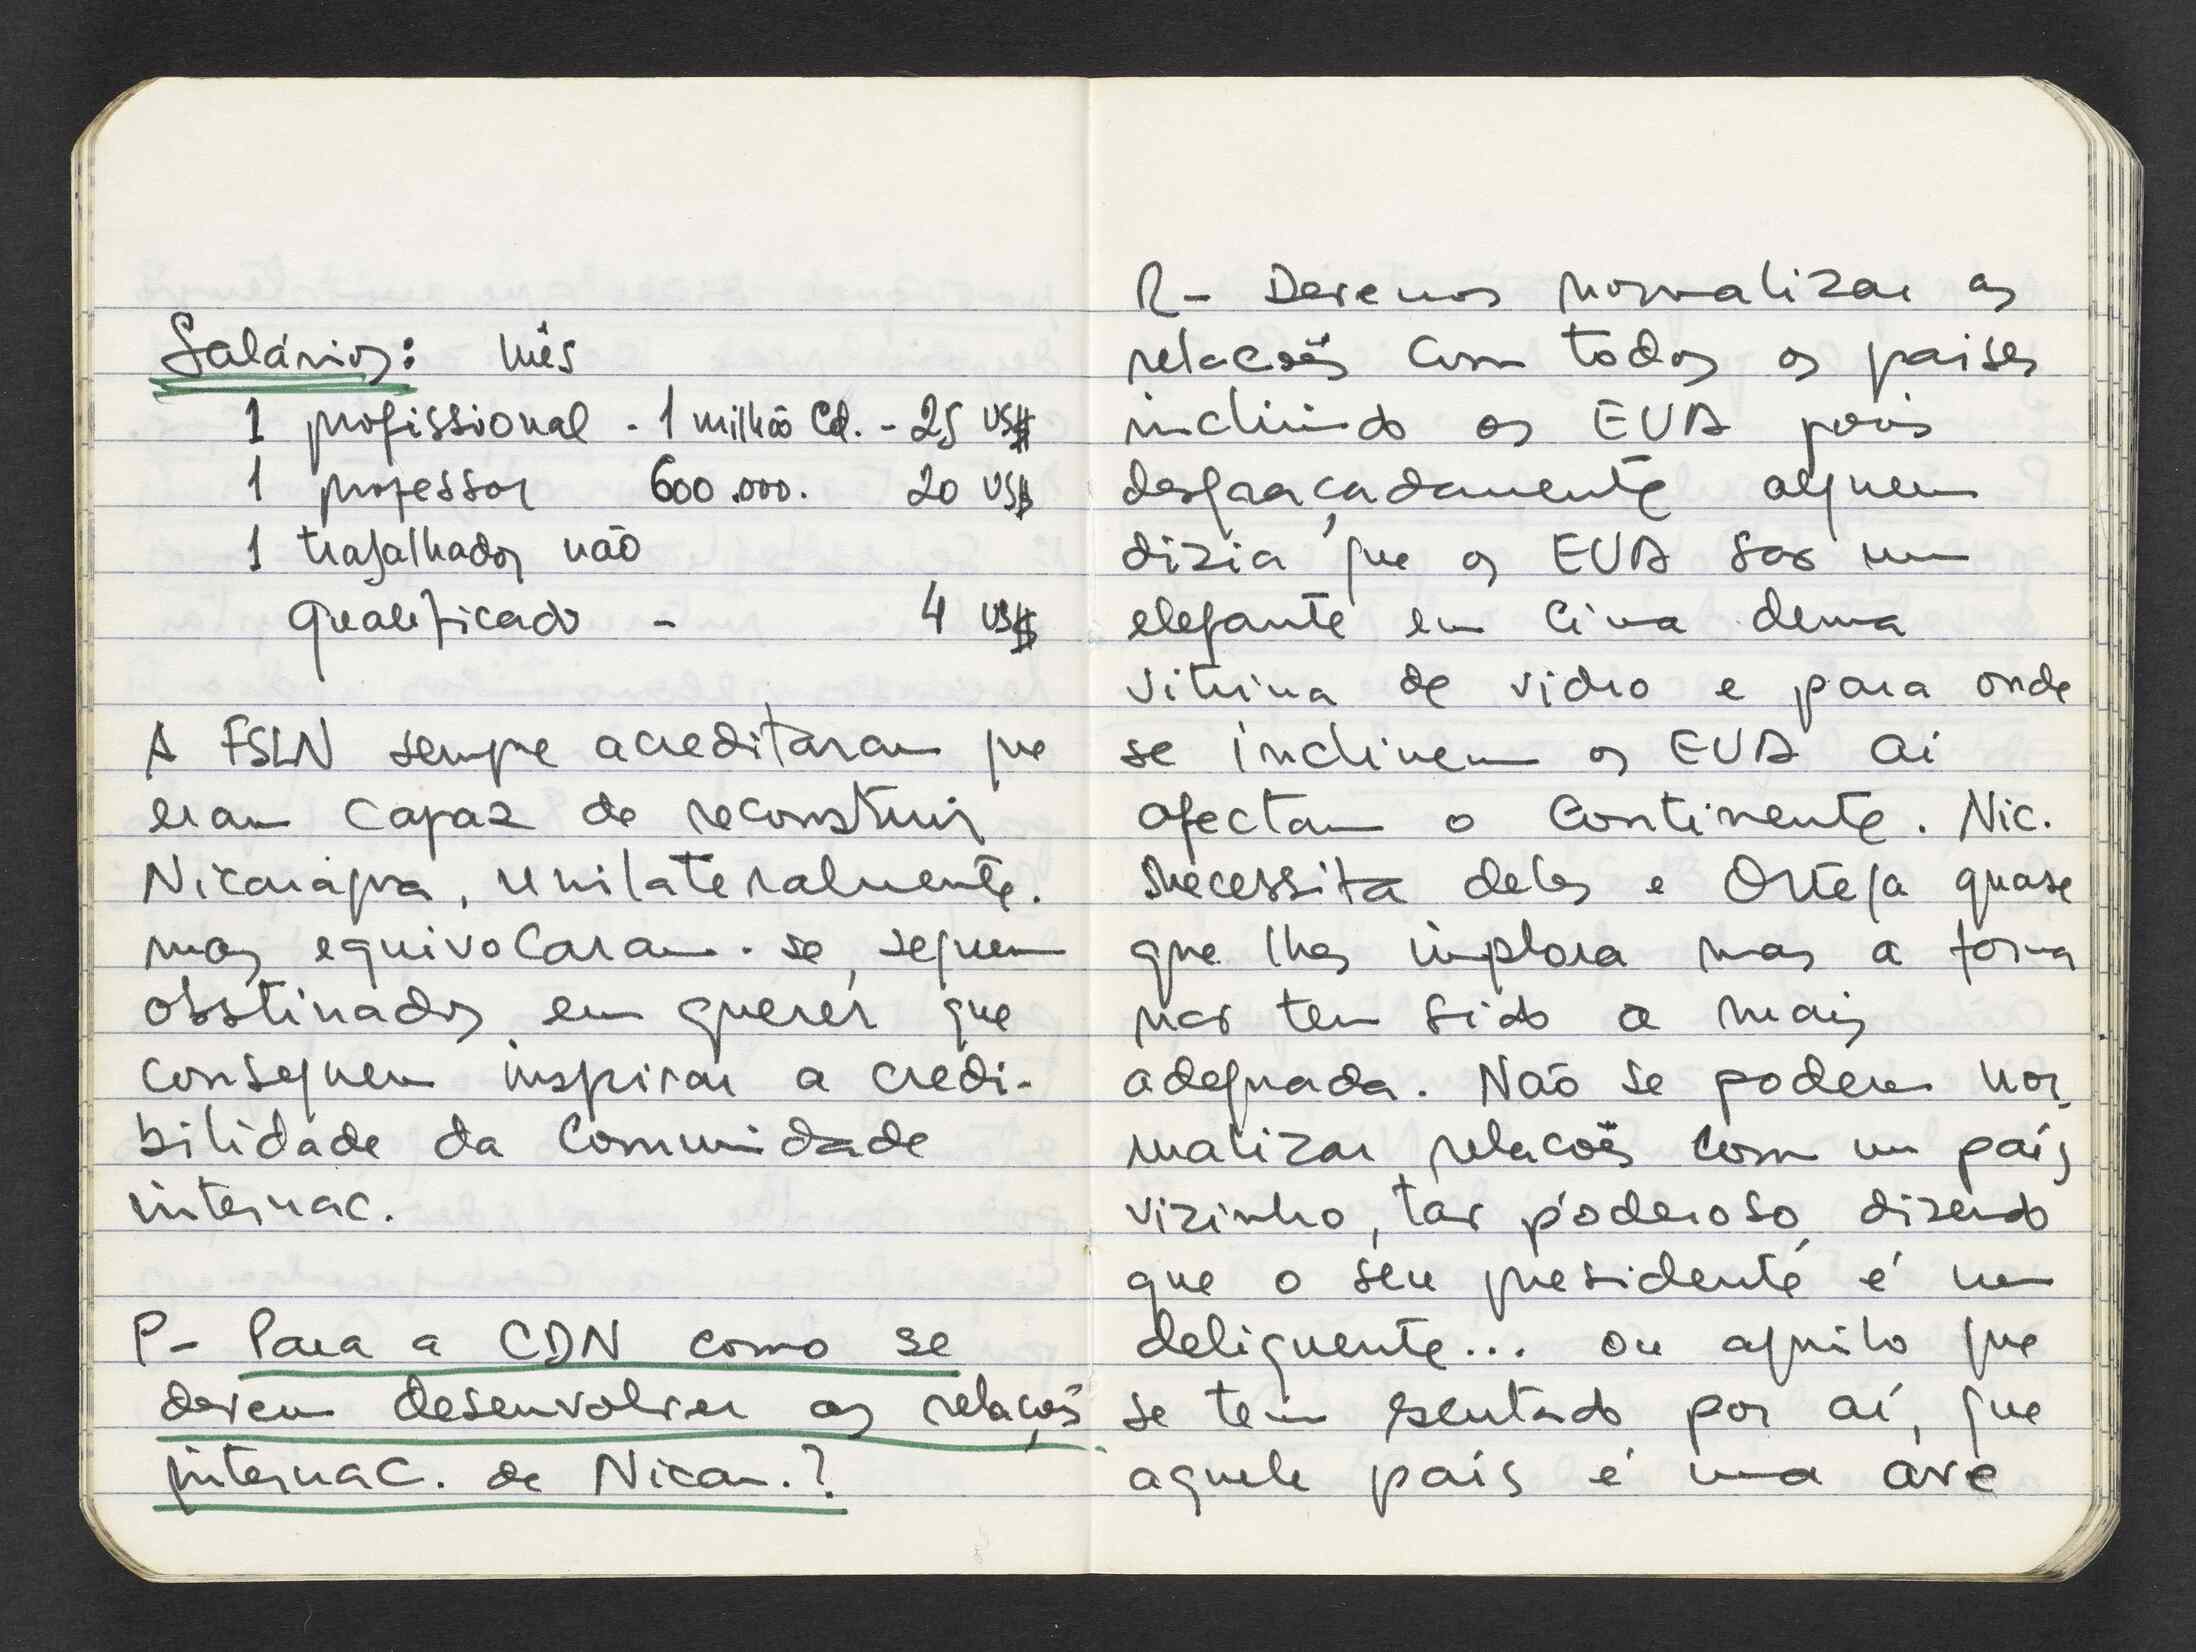 Salários: mês
1 profissional - 1 milhão Cd. - 25 US$
1 professor 600.000. 20 US$
1 trabalhador não
qualificado - 4 US$
A FSLN sempre acreditaram que
eram capaz de reconstruir
Nicarágua, unilateralmente.
mas equivocaram-se, seguem
obstinados em querer que
conseguem inspirar a credi-
bilidade da Comunidade
internac.
P- Para a CDN como se
devem desenvolver as relações
internac. de Nicar.?
R- Devemos normalizar as
relacões com todos os paises
incluindo os EUA pois
desgraçadamente alguem
dizia que os EUA sao um
elefante em cima duma
vitrina de vidro e para onde
se inclinem os EUA ai
afectam o Continente. Nic.
necessita deles e Ortega quase
que lhes implora mas a forma
nao tem sido a mais
adequada. Não se podem nor
malizar relacões com um país
vizinho, tao poderoso dizendo
que o seu presidente é um
deliquente... ou aquilo que
se tem escutado por aí, que
aquele país é uma ave